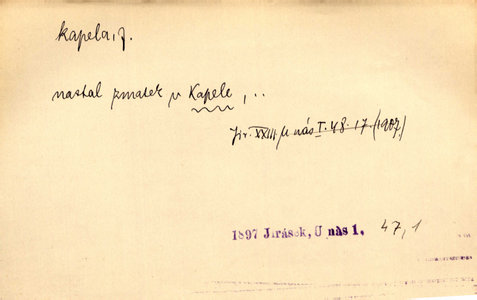 kapela, f.
nastal zmatek v Kapele, ..
Jir. XXIII U nás I. 48. 17. (1907)
1897 Jirásek, U nás 1. 47, 1